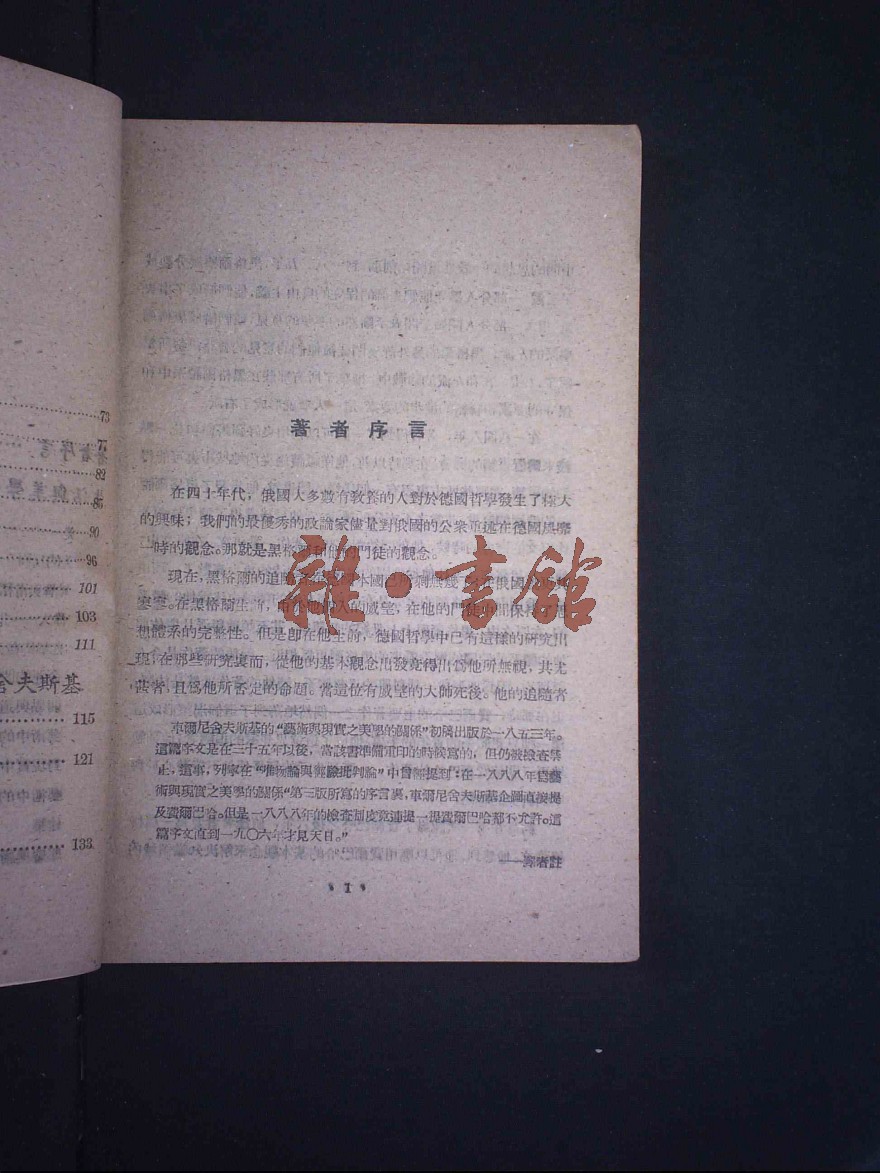 73
77
82
85
90
96
101
103
111
舍夫斯基
115
121
133
著者序言
在四十年代，俄國大多數有教養的人對於德國哲學發生了極大
的興味；我們的最優秀的政論家儘量對俄國的公衆重述在德國風靡
一時的觀念。那就是黑格爾和他的門徒的觀念。
現在，黑格爾的追隨者在
在黑格爾生前，由於他個人的威望，在他的門徒中間保持了思
想體系的完整性。但是卽在他生前，德國哲學中已有這樣的研究出
現，在那些研究裏面，從他的基本觀念出發竟得出爲他所無視，其尤
甚者，且爲他所否定的命題。當這位有威望的大師死後。他的追隨者
車爾尼舍夫斯基的“藝術與現實之美學的關係”初版出版於一八五三年。
這篇序文是在三十五年以後，當該書準備重印的時候寫的，但仍被檢查禁
止，這事，列寧在“唯物論與經驗批判論”中曾經提到：在一八八八年爲藝
術與現實之美學的關係“第三版所寫的序言裏，車爾尼舍夫斯基企圖直接提
及費爾巴哈。但是一八八八年的檢查制度竟連提一提費爾巴哈都不允許。這
篇序文直到一九〇六年才見天日。”
——譯者註
1
雜·書館